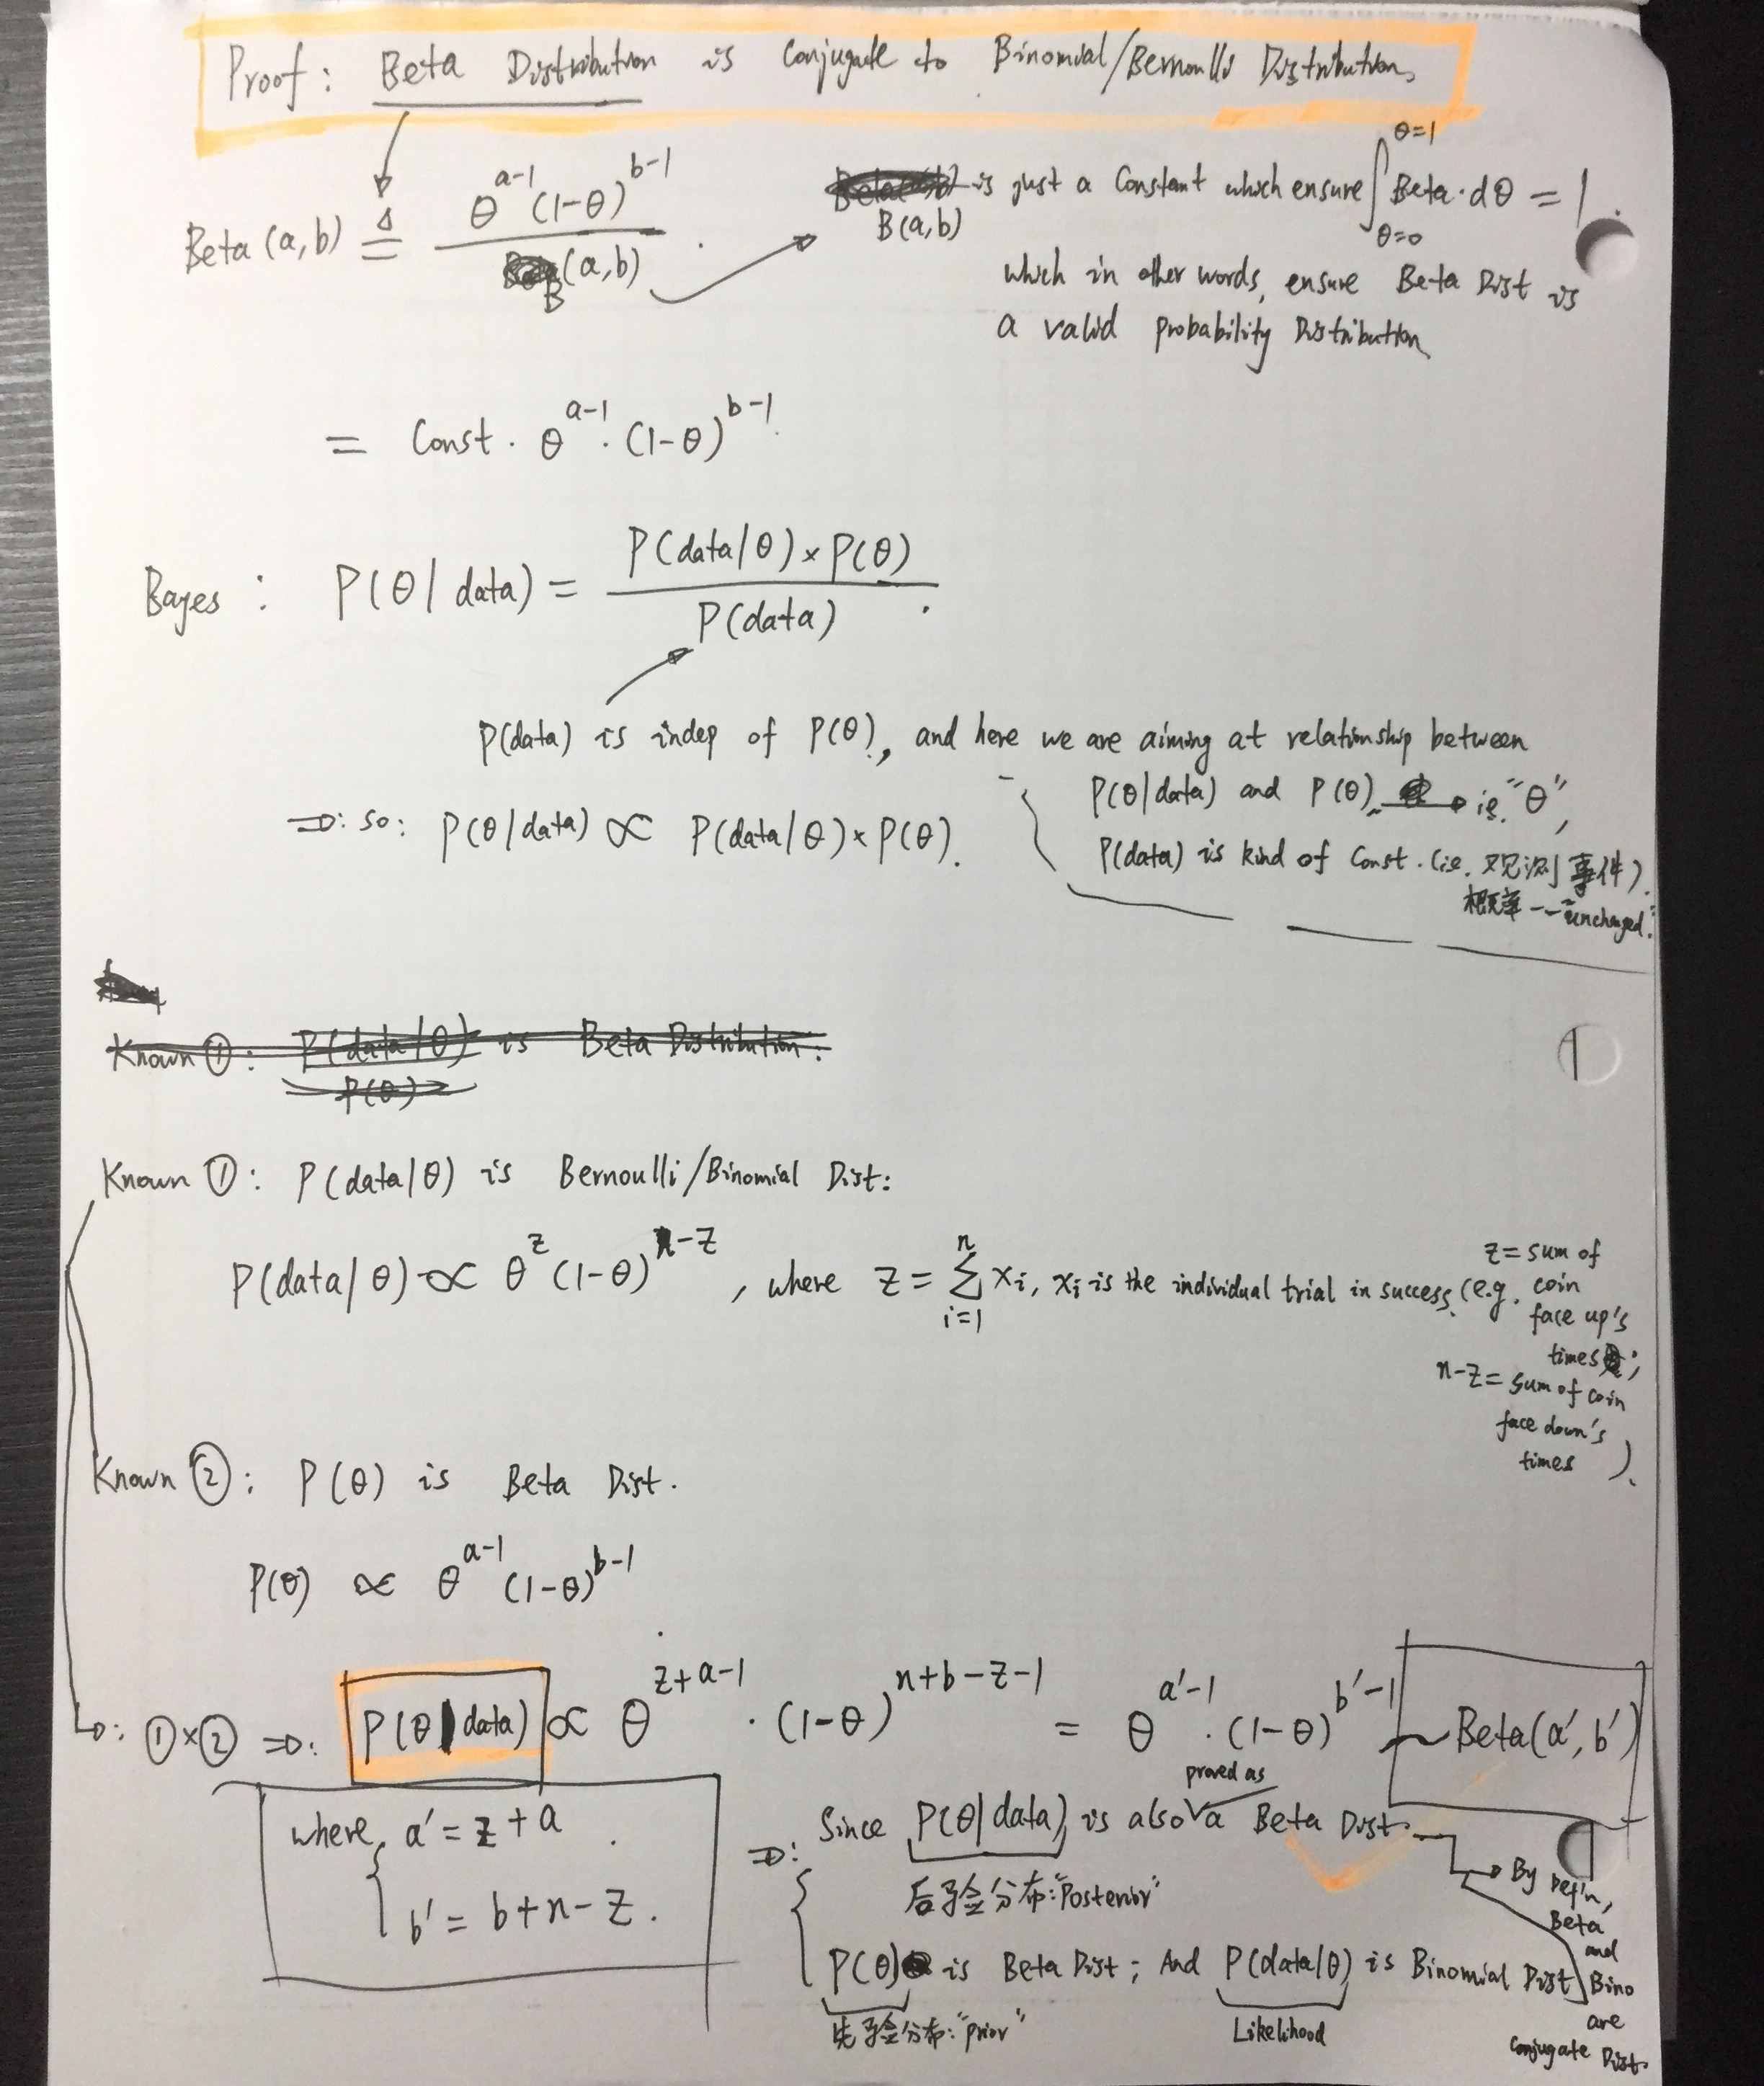 Proof: Beta Distribution is Conjugate to Binomial/Bernoulli Distribution.
Beta (a,b) ≜ θ^(a-1) (1-θ)^(b-1) / B(a,b) .
B(a,b) is just a Constant which ensure ∫_(θ=0)^(θ=1) Beta·dθ = 1.
which in other words, ensure Beta Dist is
a valid probability Distribution
= Const · θ^(a-1) · (1-θ)^(b-1).
Bayes : P(θ | data) = P(data|θ) × P(θ) / P(data) .
P(data) is indep of P(θ), and here we are aiming at relationship between
P(θ|data) and P(θ) ie. "θ",
P(data) is kind of Const. (ie. 观测事件).
概率 -- "unchanged."
⇒: so: P(θ|data) ∝ P(data|θ) × P(θ).
Known ①: P(data|θ) is Beta Distribution:
P(θ)
Known ①: P(data|θ) is Bernoulli/Binomial Dist:
P(data|θ) ∝ θ^z (1-θ)^(n-z) , where z = Σ_(i=1)^n xi, xi is the individual trial in success. (e.g.
z = sum of
coin
face up's
times;
n-z = sum of coin
face down's
times ).
Known ②: P(θ) is Beta Dist.
P(θ) ∝ θ^(a-1) (1-θ)^(b-1)
→: ①×② ⇒: P(θ|data) ∝ θ^(z+a-1) · (1-θ)^(n+b-z-1) = θ^(a'-1) · (1-θ)^(b'-1) ~ Beta(a', b')
where, a' = z + a .
b' = b+n-z.
proved as
⇒: Since P(θ|data) is also a Beta Dist.
后验分布: "Posterior"
P(θ) is Beta Dist; And P(data|θ) is Binomial Dist
先验分布: "prior"
Likelihood
By Def'n,
Beta
and
Bino
are
Conjugate Dist.